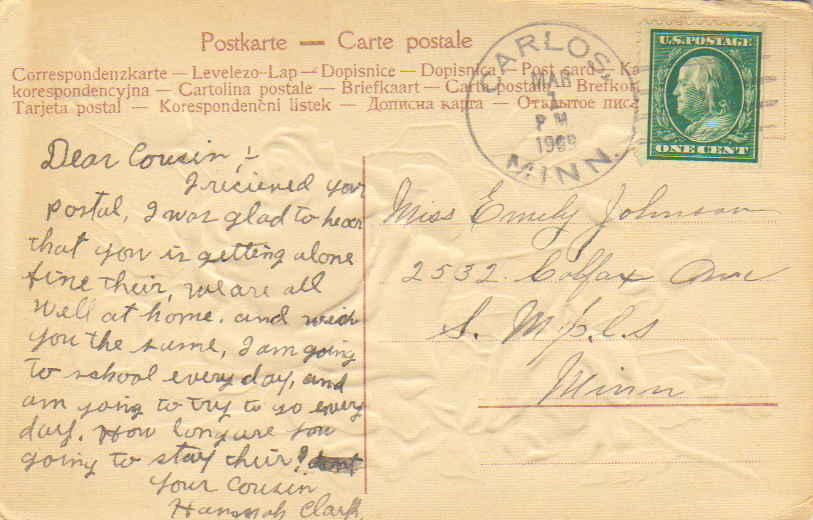 Postkarte — Carte postale
Correspondenzkarte — Levelezo-Lap — Dopisnice — Dopisnica — Post card — Ka
korespondencyjna — Cartolina postale — Briefkaart — Carta postala — Brefkort
Tarjeta postal — Korespondenční listek — Дописна карта — Открытое писг
CARLOS,
MAR
1
PM
1909
MINN.
U.S. POSTAGE
ONE CENT
Dear Cousin,:-
I recieved your
postal, I was glad to hear
that you is getting alone
fine their, we are all
well at home. and wish
you the same, I am going
to school every day, and
am going to try to go every
day. How long are you
going to stay their?
your cousin
Hannah Clark.
Miss Emily Johnson
2532 Colfax Ave
S. Mpls
Minn